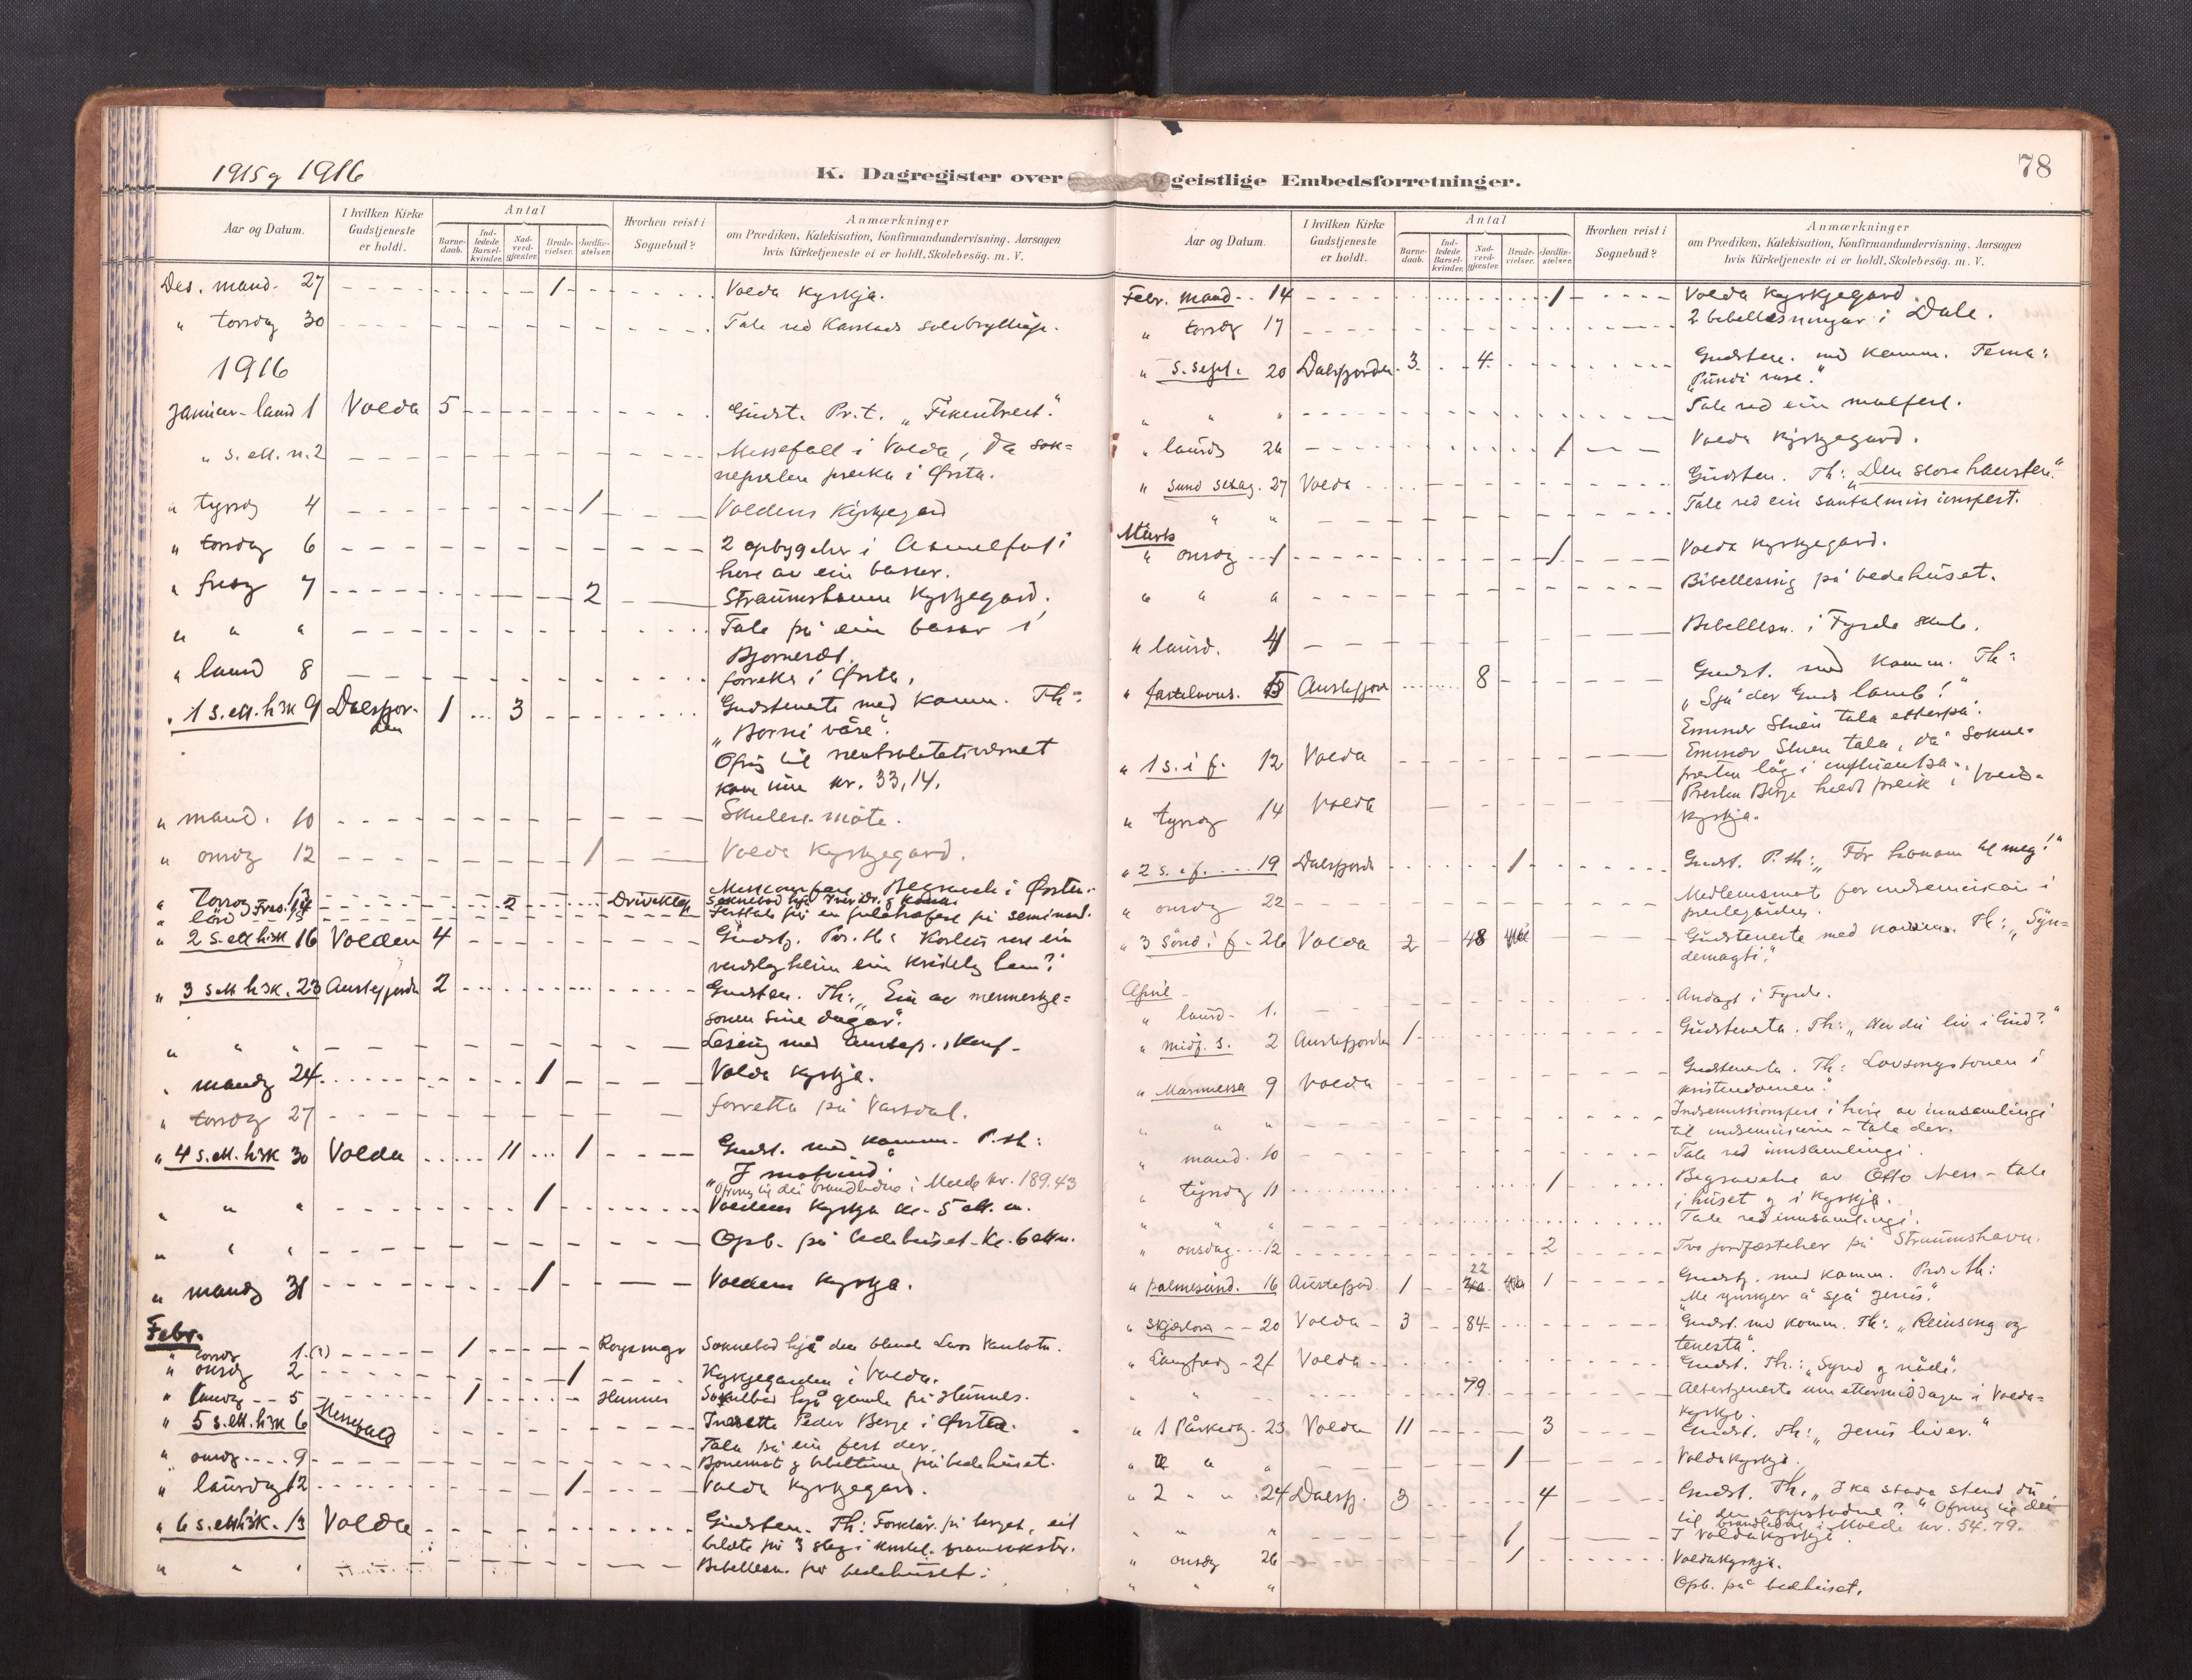 1915 og 1916
K. Dagregister over geistlige Embedsforretninger.
78
Aar og Datum.
I hvilken Kirke Gudstjeneste er holdt.
Antal
Barnedaab.
Indledede Barselkvinder.
Nadverdgjæster.
Brudevielser.
Jordfæstelser.
Hvorhen reist i Sognebud?
Anmærkninger
om Prædiken, Katekisation, Konfirmandundervisning. Aarsagen
hvis Kirketjeneste ei er holdt. Skolebesøg. m. V.
Des. mand. 27 1 Volda Kyrkja.
" torsdag 30 Tale ved
1916
Januar laurd 1 Volda 5 Gudst. Pr.t. "Fikentreet."
" S. ett. n. 2 Messefall i Volda, da sok=
nepresten preika i Ørsta.
" tyrsdag 4 1 Voldens Kyrkjegard
" torsdag 6 2 opbyggelser i
hove av ein basar.
" fredag 7 2 Straumshamn Kyrkjegard.
" " " Tale på ein basar i
" laurd 8 forretta i Ørsta.
" 1 S. ett. h3k 9 Dalsfjor-
den 1 3 Gudsteneste med Komm. Th:
"Borni våre".
Ofring til neutralitetsvernet
kom inn kr. 33,14.
" mand. 10 Skulest. møte.
" onsdag 12 1 Volda Kyrkjegard.
" Torsdag 13 Begravels i Ørsta.
" Fred. 14 2
" laurd 15 Festtale på en juletrefest på seminaret.
" 2 S. ett h3k 16 Volden 4 Gudstj. Pr. th: Korleis vert ein
verdsleg heim ein kristeleg heim?
" 3 s ett h3k. 23 Austefjorden 2 Gudsten. Th: "Ein av menneskje=
sonen sine dagar".
" " " Lesing med Austefj. Konf.
" mandag 24 1 Volda Kyrkja.
" torsdag 27 forretta på Vartdal.
" 4 s. ett. h3k 30 Volda 11 1 Gudst. med Komm. P. th:
"I motvind".
Ofring til dei brandlidne i Molde kr. 189.43
" " " 1 Voldens Kyrkja kl. 5 ett. m.
" " " Opb. på bedehuset kl. 6 ettm.
" mandag 31 1 Voldens Kyrkja.
Febr.
" torsdag 1. (?) 1 Soknebod hjå den blinde Lars
" onsdag 2 1 Kyrkjegarden i Volda.
" laurdag 5 1 Hunnes Soknebod hjå gamle på Hunnes.
" 5 s. ett. h3k 6 Messefald Peder Berge i Ørsta.
Tala på ein fest der.
" onsdag 9 Bønemøt og bibeltime på bedehuset.
" laurdag 12 1 Volda Kyrkjegard.
" 6 s. ett h3k. 13 Volda Gudsten. Th: Forklår. på berget, eit
bilete på 3 slag i kristel. framvokster.
" " " Bibellesn. på bedehuset.
Aar og Datum.
I hvilken Kirke Gudstjeneste er holdt.
Antal
Barnedaab.
Indledede Barselkvinder.
Nadverdgjæster.
Brudevielser.
Jordfæstelser.
Hvorhen reist i Sognebud?
Anmærkninger
om Prædiken, Katekisation, Konfirmandundervisning. Aarsagen
hvis Kirketjeneste ei er holdt. Skolebesøg. m. V.
Febr. mand. 14 1 Volda Kyrkjegard.
" torsdag 17 2 bibellesningar i Dale.
" S. sept. 20 Dalsfjorden 3 4 Gudsten. med Komm. Tema:
" " " Tale ved ein
" laurdag 26 1 Volda Kyrkjegard.
" Sund seksag. 27 Volda Gudsten. Th: "Den store hausten".
" " Tale ved ein santalmisjonsfest.
Marts
" onsdag 1 1 Volda Kyrkjegard.
" " " Bibellesning på bedehuset.
" laurd. 4 Bibellesn. i Fyrde skule.
" fastelavns. 5 Austefjord 8 Gudst. med Komm. Th:
"Sjå der Guds lamb!"
tala etterpå.
" 1 s. i f. 12 Volda tala, då sokne-
presten låg i influensa.
" tyrsdag 14 Volda Presten Berge heldt preik i Volda
kyrkja.
" 2 s. i f. 19 Dalsfjorden 1 Gudst. P. th: "Før honom til meg!"
" onsdag 22 Medlemsmøt for indremisjon i
prestegarden.
" 3 Sønd i f. 26 Volda 2 48 Gudsteneste med Komm. Th: "Syn=
demagti".
April
" laurd. 1. Andagt i Fyrde.
" Midf. s. 2 Austefjorden 1 Gudstenesta. Th: "Har du liv i Gud?"
" Marimessa 9 Volda Gudstenesta. Th: Lovsongstonen i
kristendomen."
" " " Indremissionsfest i høve av innsamlingi
til indremisjonen - tale der.
" mand. 10 Tale ved innsamlingi.
" tyrsdag 11 1 Begravelse av Otto Ness - tale
i huset og i Kyrkja.
" " " Tale ved innsamlingi.
" onsdag 12 2 Tvo jordfæstelser på Straumshavn.
" palmesund. 16 Austefjord. 1 22 1 Gudstj. med Komm. Pr. th:
"Me ynskjer å sjå Jesus."
" Skjærtorsd 20 Volda 3 84 Gudst. med Komm. Th: "Reinsing og
tenesta".
" Langfredag 21 Volda Gudst. Th.: "Synd og nåde".
" " 79 Altertjenesta um ettermiddagen i Volda=
Kyrkja.
" 1 Påskedag 23 Volda 11 3 Gudst. Th: "Jesus liver."
" " " 1 Volda Kyrkja.
" 2 " " 24 Dalsfj. 3 4 Gudst. Th. "I ka stode stend du
til den upstadne?" Ofring til dei
brandlidne i Molde kr. 54.79.
" " " 1 I Volda Kyrkja.
" onsdag 26 1 Volda Kyrkja.
" " " Opb. på bedhuset.